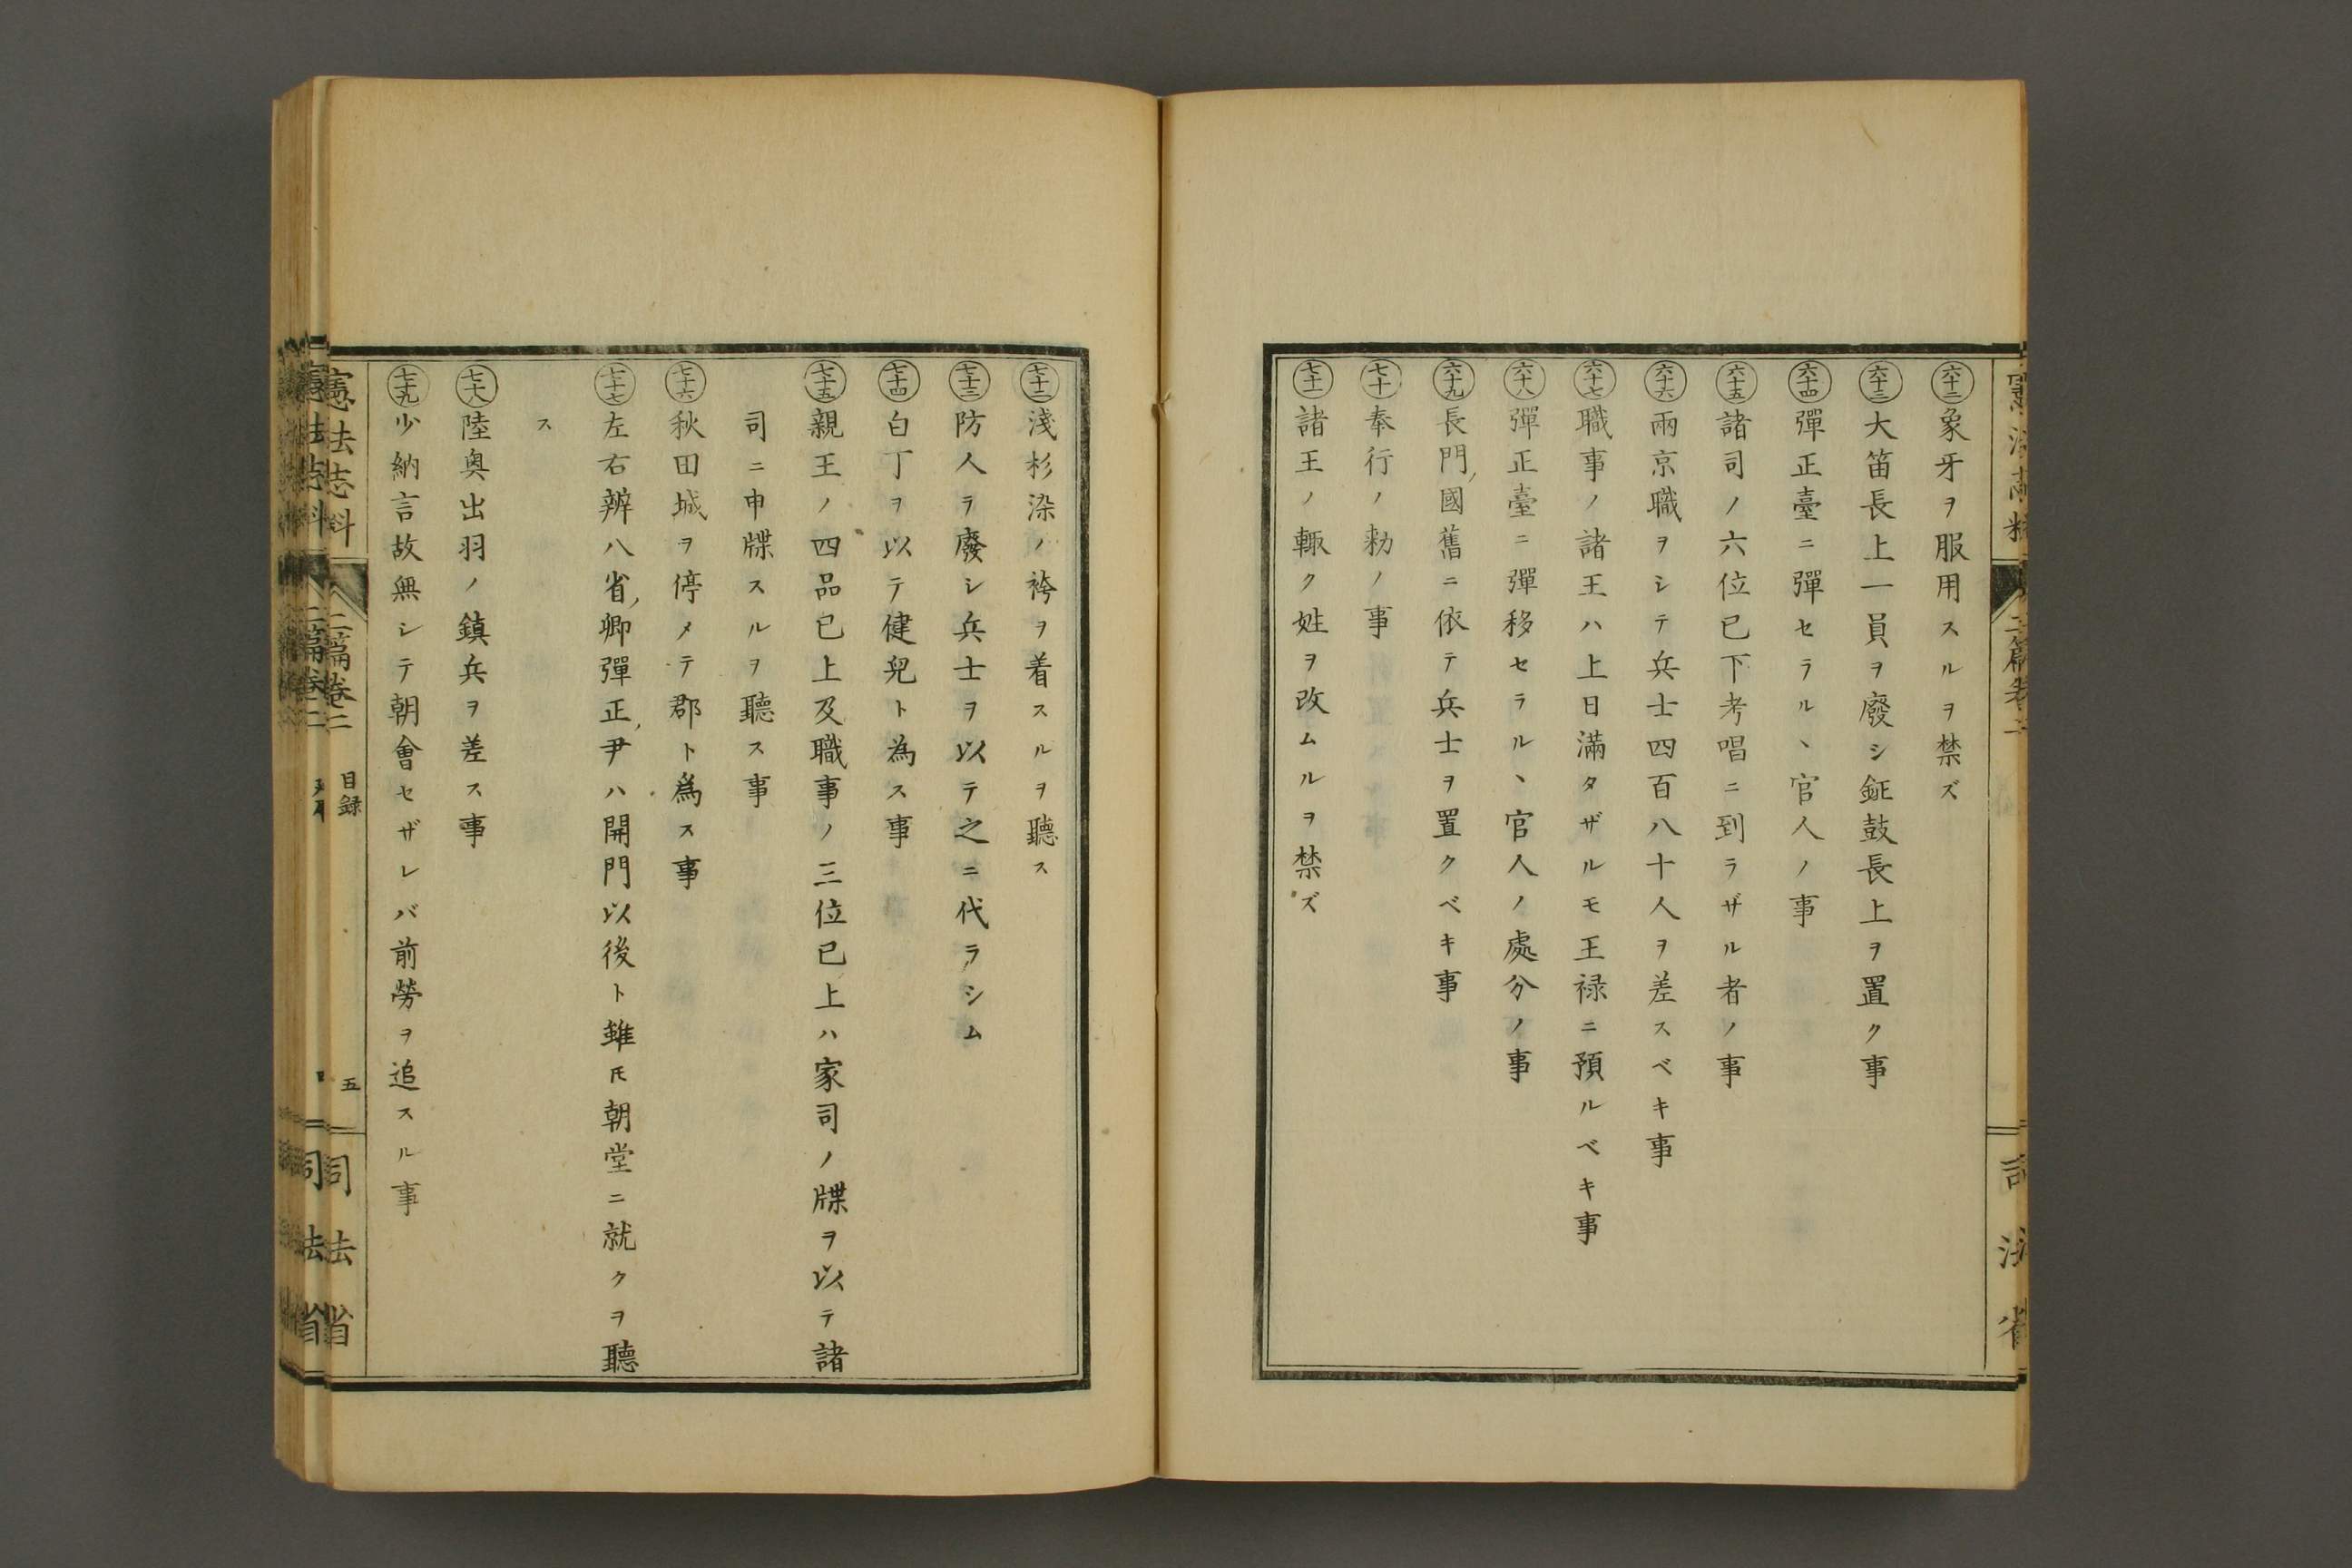 六十二 象牙ヲ服用スルヲ禁ズ
六十三 大笛長上一員ヲ廢シ鉦鼓長上ヲ置ク事
六十四 彈正臺ニ彈セラルヽ官人ノ事
六十五 諸司ノ六位已下考唱ニ到ラザル者ノ事
六十六 兩京職ヲシテ兵士四百八十人ヲ差スベキ事
六十七 職事ノ諸王ハ上日滿タザルモ王禄ニ預ルベキ事
六十八 彈正臺ニ彈移セラルヽ官人ノ處分ノ事
六十九 長門國舊ニ依テ兵士ヲ置クベキ事
七十 奉行ノ勑ノ事
七十一 諸王ノ輙ク姓ヲ改ムルヲ禁ズ
七十二 淺杉染ノ袴ヲ着スルヲ聽ス
七十三 防人ヲ廢シ兵士ヲ以テ之ニ代ラシム
七十四 白丁ヲ以テ健兒ト為ス事
七十五 親王ノ四品已上及職事ノ三位已上ハ家司ノ牒ヲ以テ諸
司ニ申牒スルヲ聽ス事
七十六 秋田城ヲ停メテ郡ト爲ス事
七十七 左右辨八省卿彈正尹ハ開門以後ト雖𪜈朝堂ニ就クヲ聽
ス
七十八 陸奥出羽ノ鎮兵ヲ差ス事
七十九 少納言故無シテ朝會セザレバ前勞ヲ追スル事
憲法志料 二篇卷二 目録 五 司法省